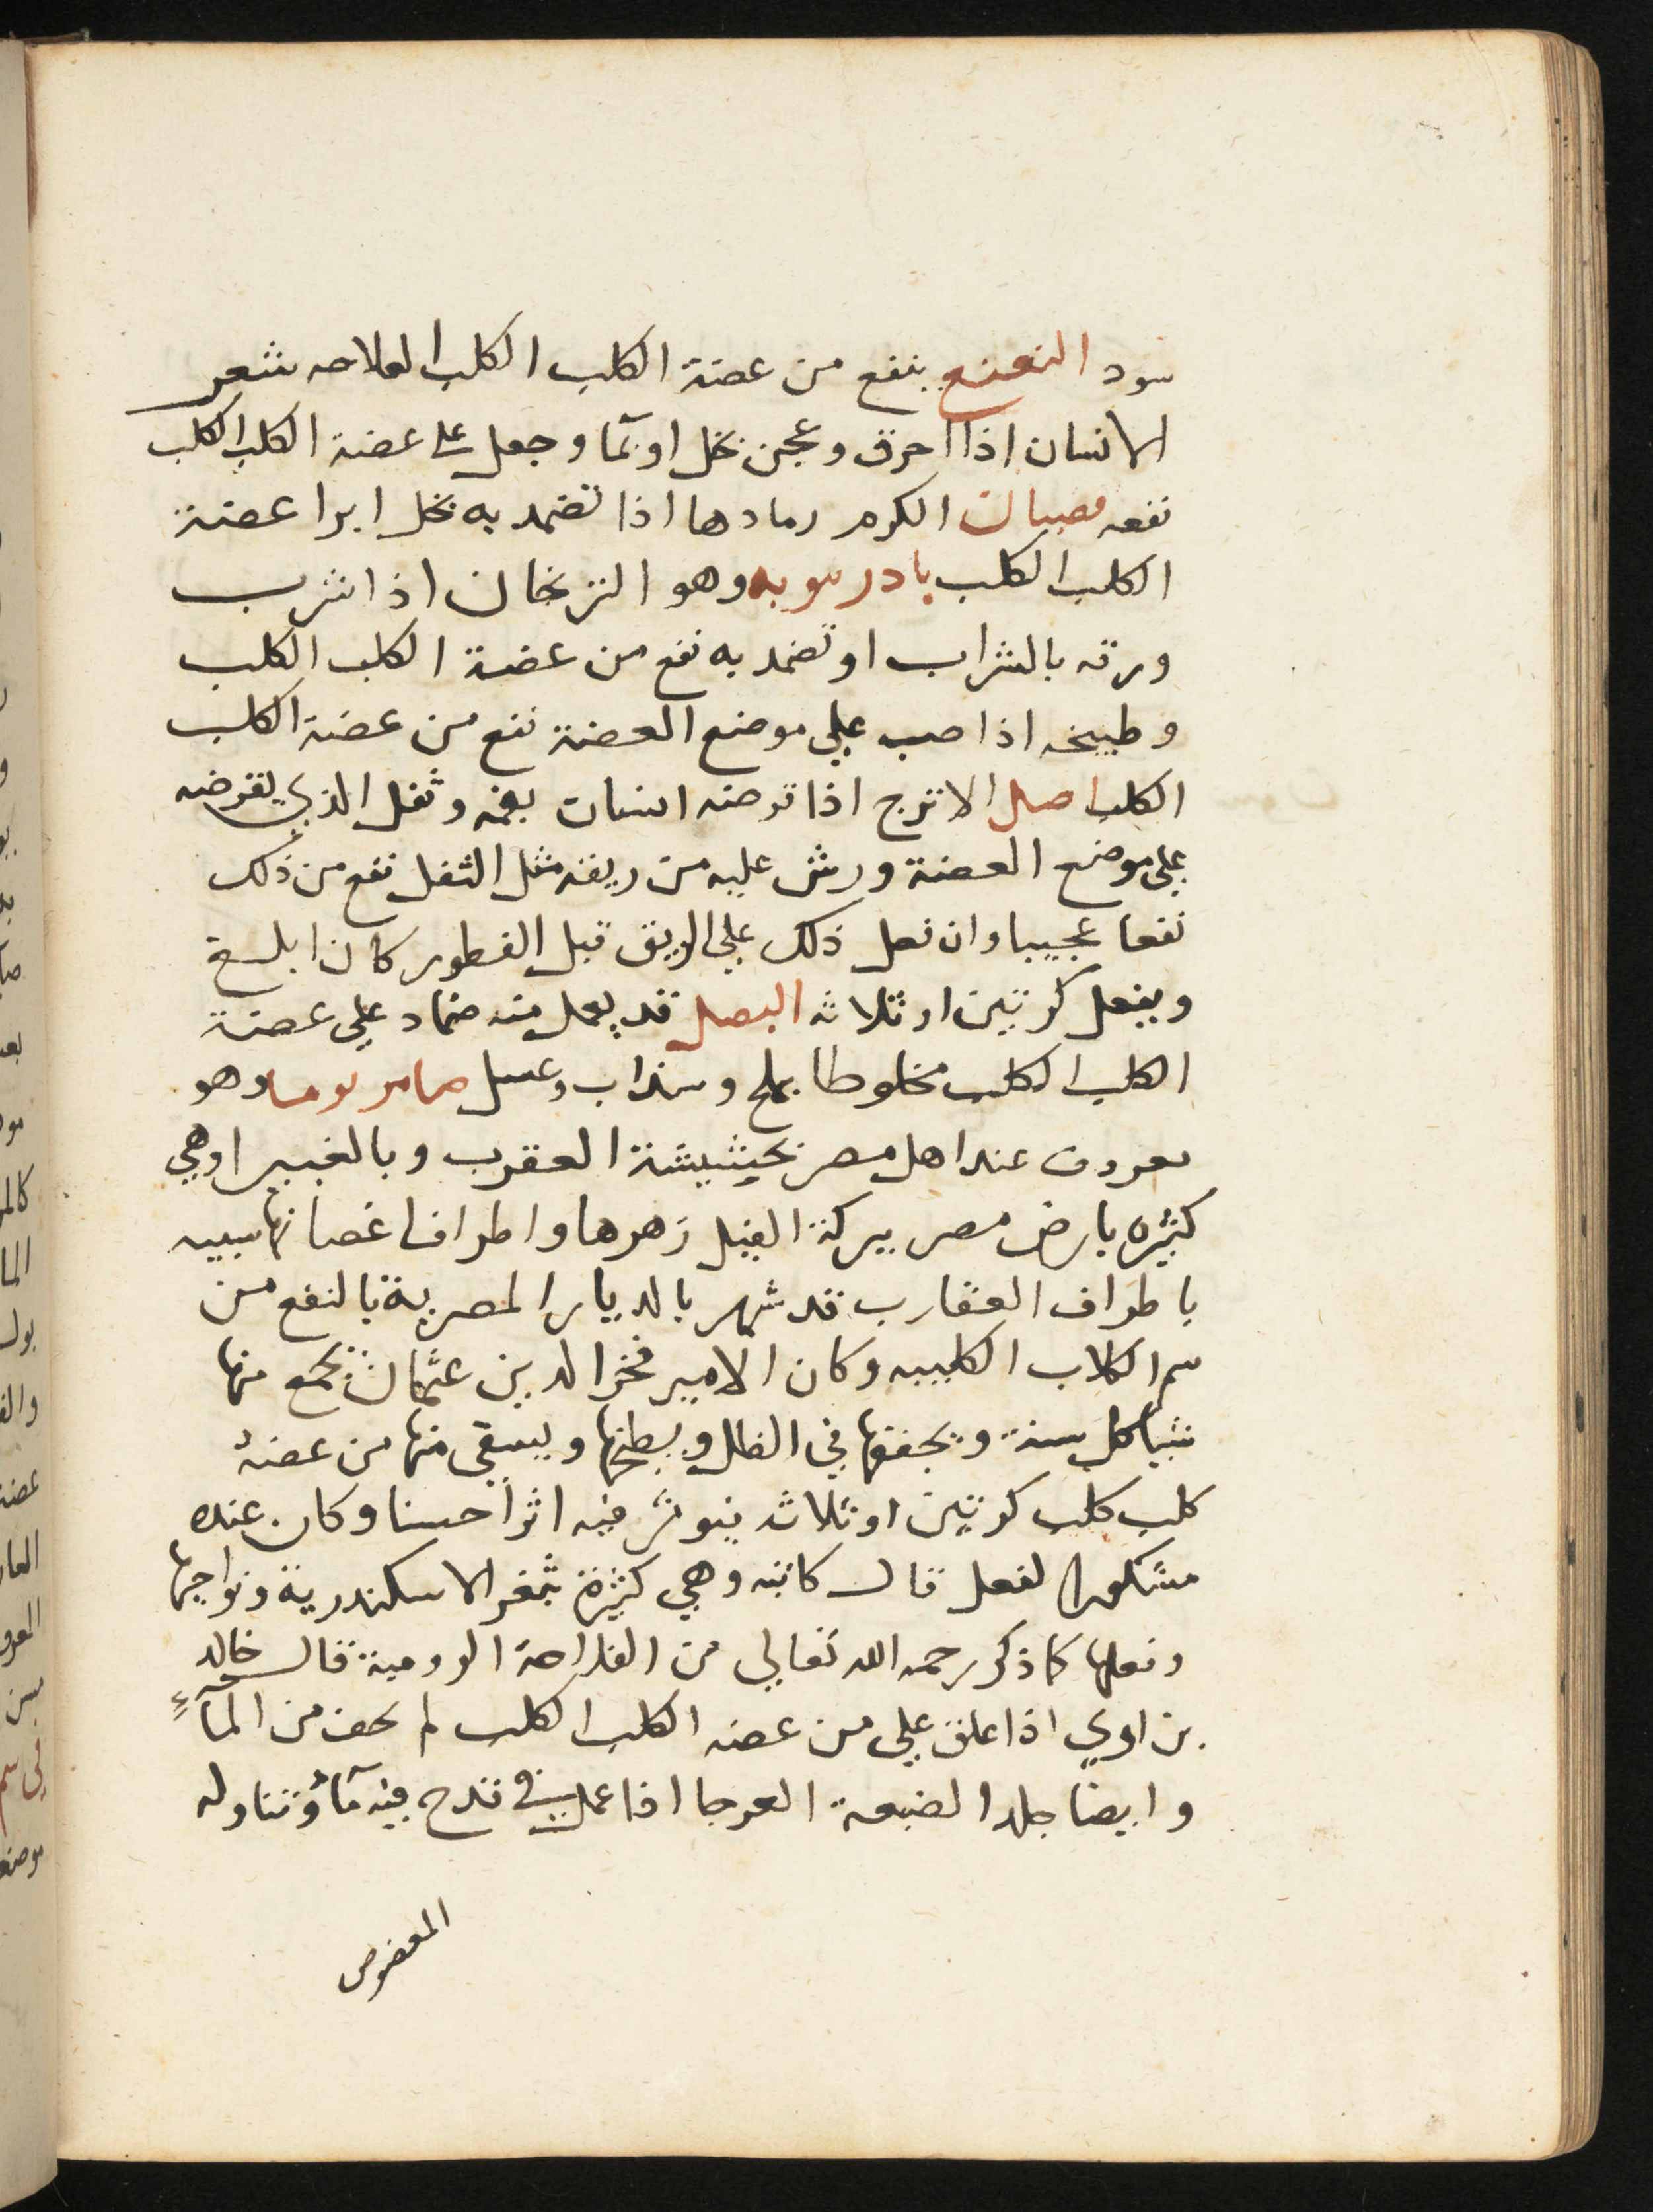 سود النعنع ينفع من عضة الكلب الكلب شعر
الانسان اذا احرق وعجن بخل او بمآ وجعل على عضة الكلب الكلب
نفعه الكرم رمادها اذا تضمد به بخل ابرا عضة
الكلب الكلب بادرنبويه وهو الترنجان اذا شرب
ورقه بالشراب او تضمد به نفع من عضة الكلب الكلب
وطبيخه اذا صب علي موضع العضة نفع من عضة الكلب
الكلب اصل الاترج اذا قرضه انسان بفمه وتفل الذي يقرضه
علي موضع العضة ورش عليه من ريقه مثل التفل نفع من ذلك
نفعا عجيبا وان فعل ذلك علي الريق قبل الفطور كان ابلغ
ويفعل كرتين او ثلاثه البصل قد يعمل منه ضماد علي عضة
الكلب الكلب مخلوطا بملح وسداب وعسل صامر يوما وهو
معروف عند اهل مصر بحشيشة العقرب وبالغبيرا وهي
كثيره بارض مصر ببركة الفيل زهرها واطراف اغصانها شبيه
باطراف العقارب قد شهر بالديار المصرية بالنفع من
سم الكلاب الكلبه وكان الامير فخر الدين عثمان يجمع منها
شيا كل سنة ويجففها في الظل ويطبخها ويسقي منها من عضهُ
كلب كلب كرتين او ثلاثه فيوثر فيه اثرا حسنا وكان عنده
مشكورا لفعل قال كاتبه وهي كثيرة بثغر الاسكندرية ونواحيها
وفعلها كما ذكر رحمه الله تعالي من الفلاحة الرومية قال خالد
بن اوي اذا علق علي من عضه الكلب الكلب لم يخف من المآءِ
وايضا جلد الضبعة العرجا اذا عمل في قدح فيه مآءُ وتناوله
المعضوض